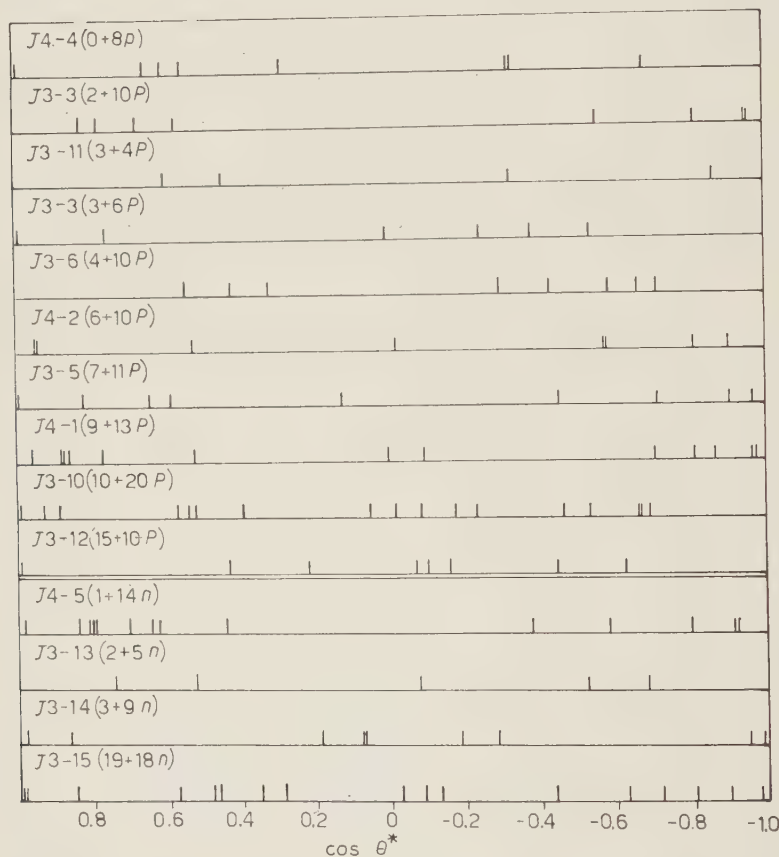 J4.-4(0+8p)
J3-3(2+10P)
J3-11(3+4P)
J3-3(3+6P)
J3-6(4+10P)
J4-2(6+10P)
J3-5(7+11P)
J4-1(9+13P)
J3-10(10+20P)
J3-12(15+10P)
J4-5(1+14n)
J3-13(2+5n)
J3-14(3+9n)
J3-15(19+18n)
0.8 0.6 0.4 0.2 0 -0.2 -0.4 -0.6 -0.8 -1.0
cos θ*